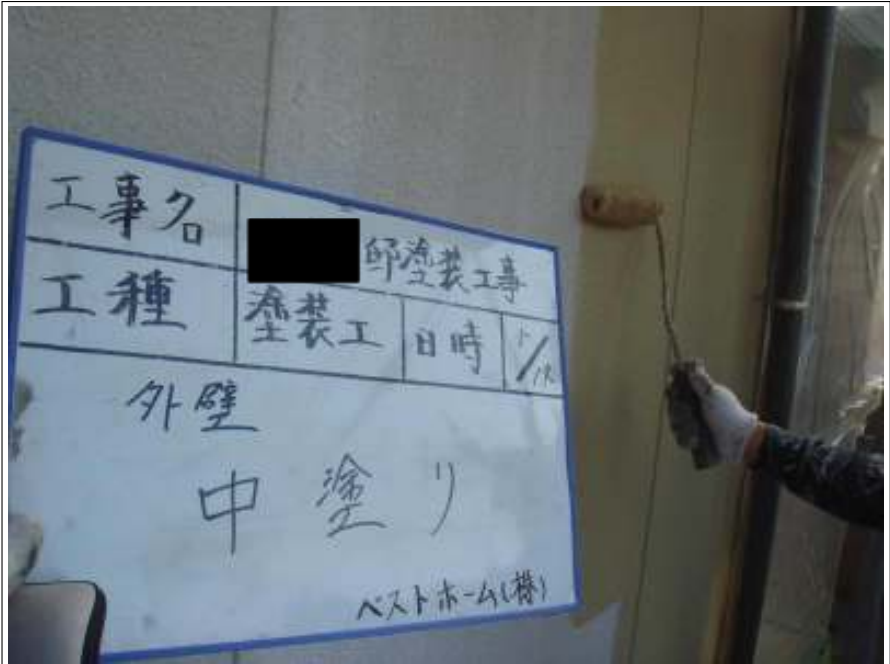 工事名 邸塗装工事
工種 塗装工 日時
外壁
中塗り
ベストホーム(株)